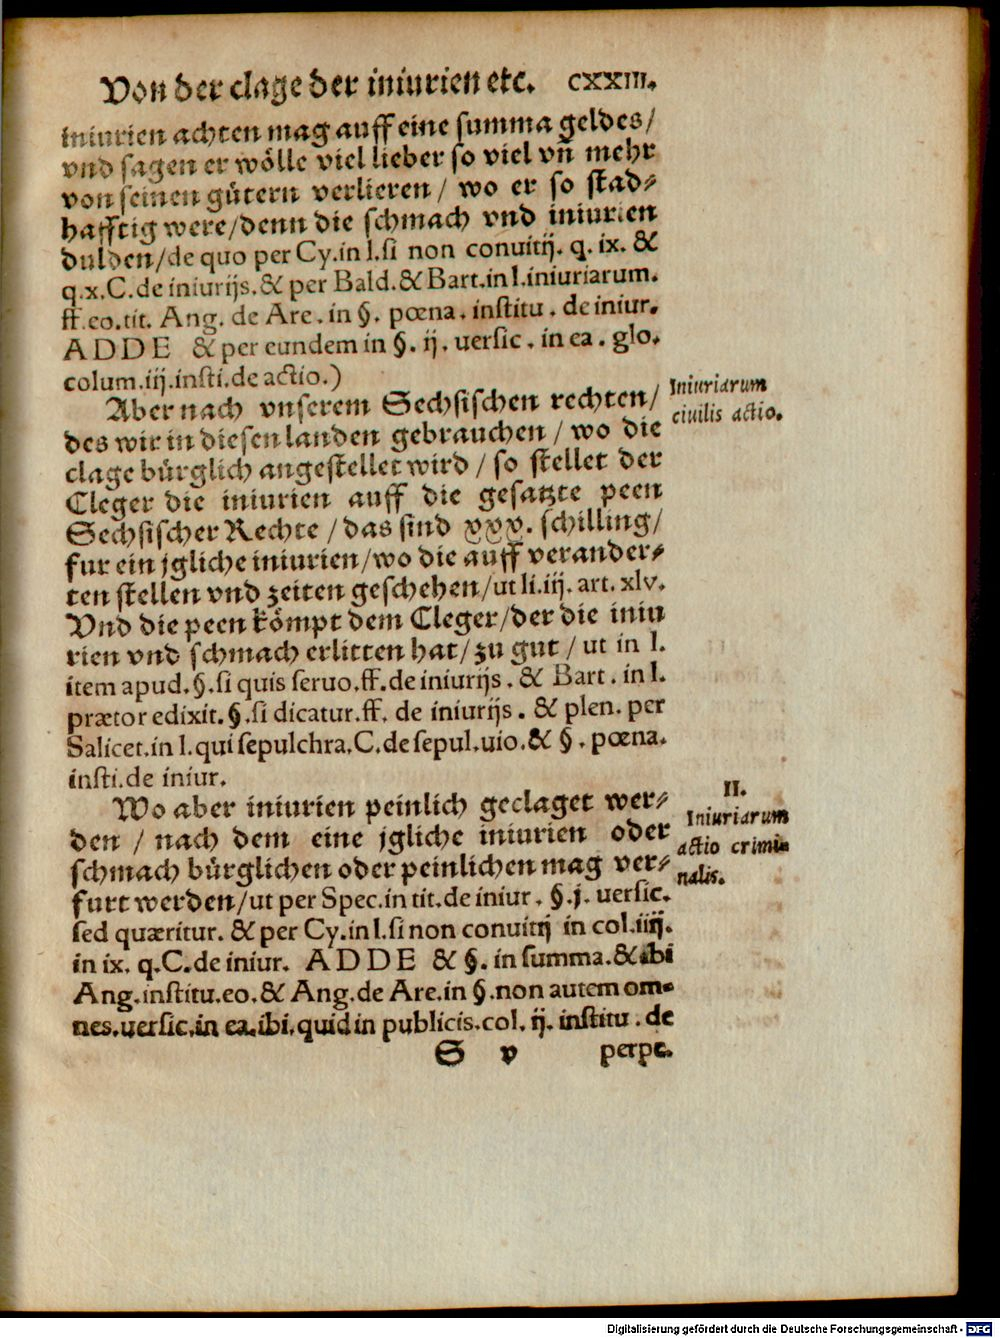 Von der clage der iniurien etc. CXXIII.
iniurien achten mag auff eine summa geldes/
vnd sagen er wölle viel lieber so viel vñ mehr
von seinen gütern verlieren / wo er so stad⸗
hafftig were/denn die schmach vnd iniurien
dulden/de quo per Cy.in l.si non conuitij. q. ix. &
q.x.C.de iniurijs.& per Bald.& Bart.in l.iniuriarum.
ff.eo.tit. Ang. de Are. in §. pœna. institu. de iniur.
ADDE & per eundem in §. ij. uersic. in ea. glo.
colum.iij.insti.de actio.)
Aber nach vnserem Sechsischen rechten/
des wir in diesen landen gebrauchen / wo die
clage bürglich angestellet wird / so stellet der
Cleger die iniurien auff die gesatzte peen
Sechsischer Rechte / das sind xxx. schilling/
fur ein jgliche iniurien/wo die auff verander⸗
ten stellen vnd zeiten geschehen/ut li.iij. art. xlv.
Vnd die peen kömpt dem Cleger/der die iniu
rien vnd schmach erlitten hat/ zu gut / ut in l.
item apud.§.si quis seruo.ff.de iniurijs. & Bart. in l.
prætor edixit.§.si dicatur.ff. de iniurijs. & plen. per
Salicet.in l.qui sepulchra.C.de sepul.uio.& §. pœna.
insti.de iniur.
Iniuriarum
ciuilis actio.
Wo aber iniurien peinlich geclaget wer⸗
den / nach dem eine jgliche iniurien oder
schmach bürglichen oder peinlichen mag ver⸗
furt werden/ut per Spec.in tit.de iniur. §.j. uersic.
sed quæritur. & per Cy.in l.si non conuitij in col.iiij.
in ix. q.C.de iniur. ADDE & §. in summa.& ibi
Ang.institu.eo.& Ang.de Are.in §.non autem om⸗
nes.uersic.in ea.ibi.quid in publicis.col. ij. institu. de
II.
Iniuriarum
actio crimi⸗
nalis.
S v perpe.
Digitalisierung gefördert durch die Deutsche Forschungsgemeinschaft - DFG